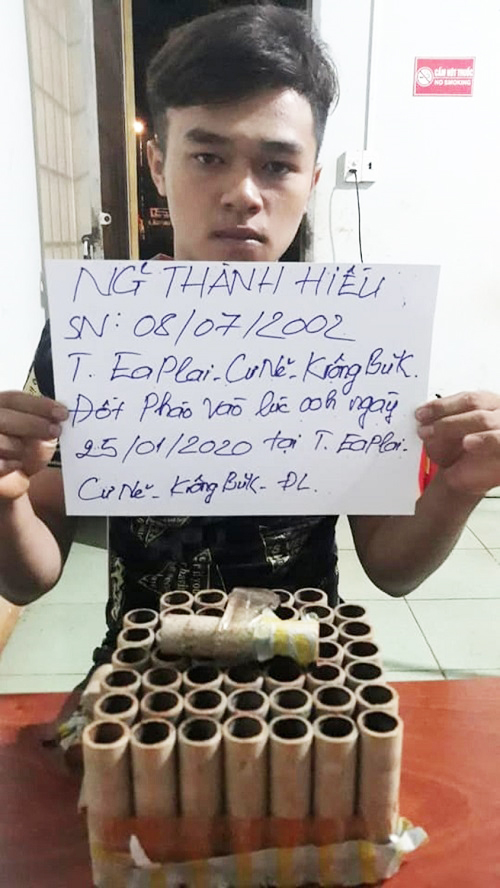 CẤM HÚT THUỐC
NO SMOKING
NG~ THÀNH HIẾU
SN: 08/07/2002
T. EaPlai - CưNé - KrôngBúk.
Đốt Pháo vào lúc 00h ngày
25/01/2020 tại T. EaPlai -
CưNé - KrôngBúk - ĐL.